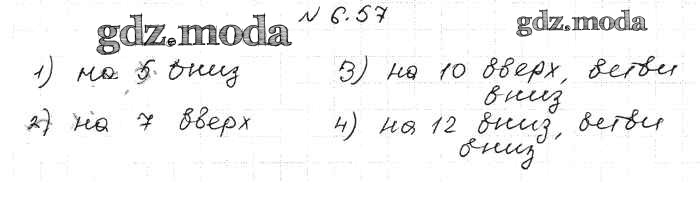 № 6.57
gdz.moda gdz.moda
1) на 5 вниз 3) на 10 вверх, ветви
вниз
2) на 7 вверх 4) на 12 вниз, ветви
вниз